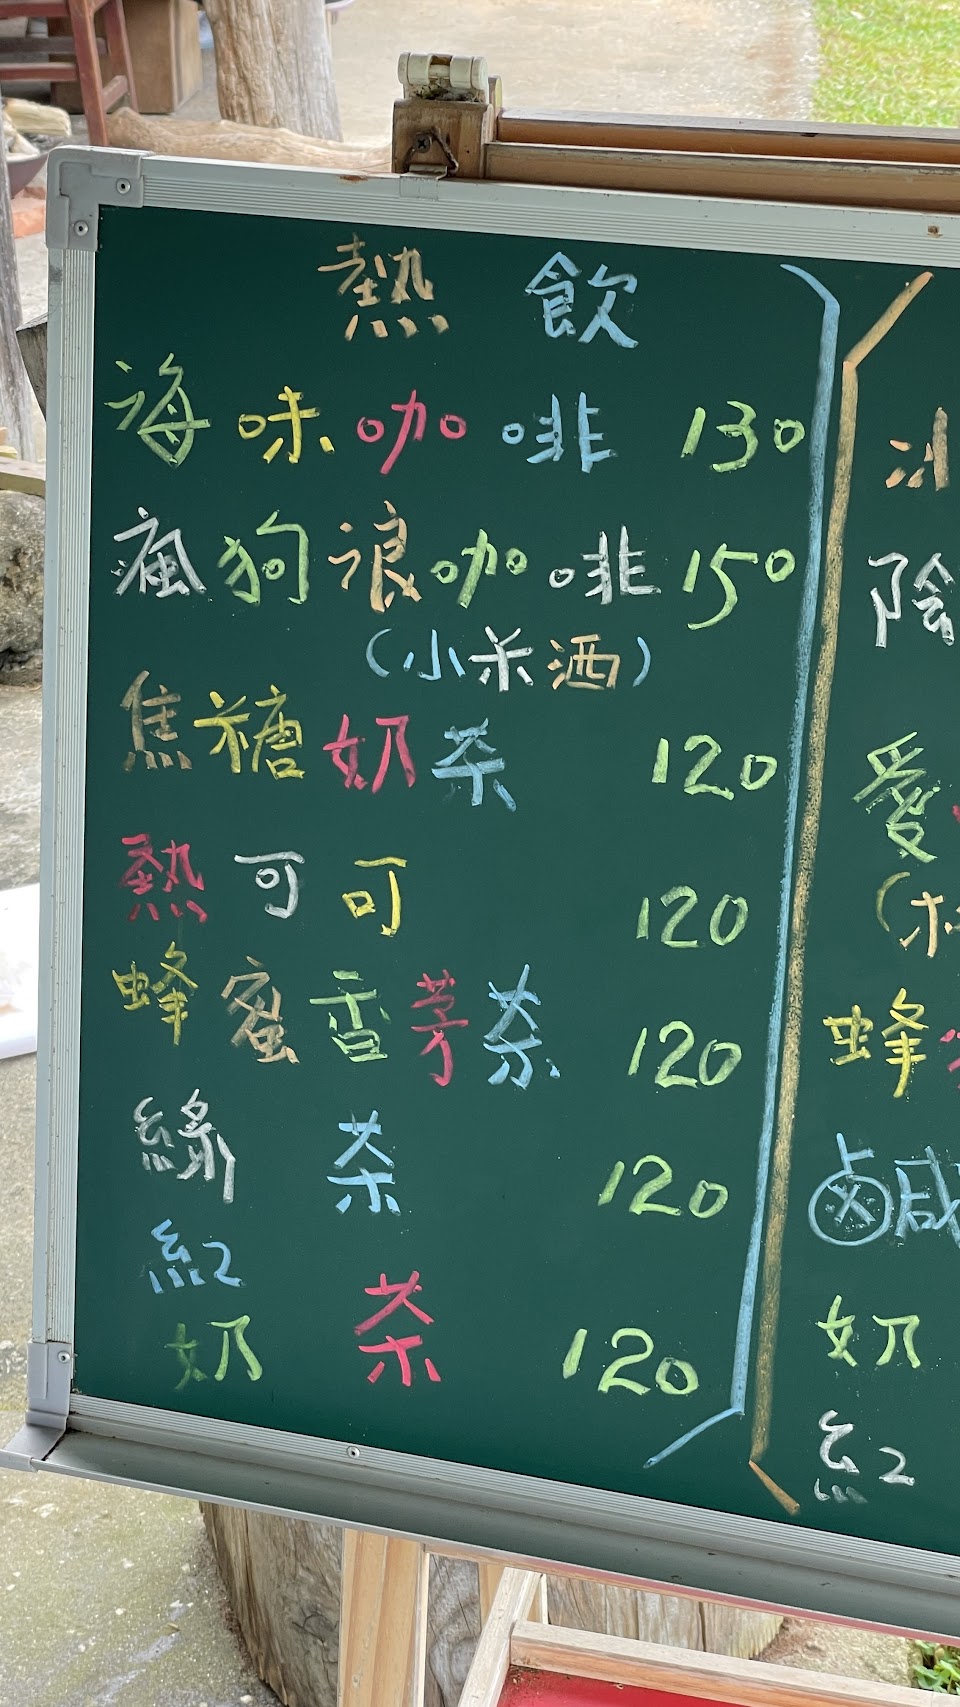 熱飲
海味咖啡 130
瘋狗浪咖啡 150
（小米酒）
焦糖奶茶 120
熱可可 120
蜂蜜香茅茶 120
綠茶 120
紅
奶茶 120
冰
陰
愛
蜂
鹵咸
奶
紅